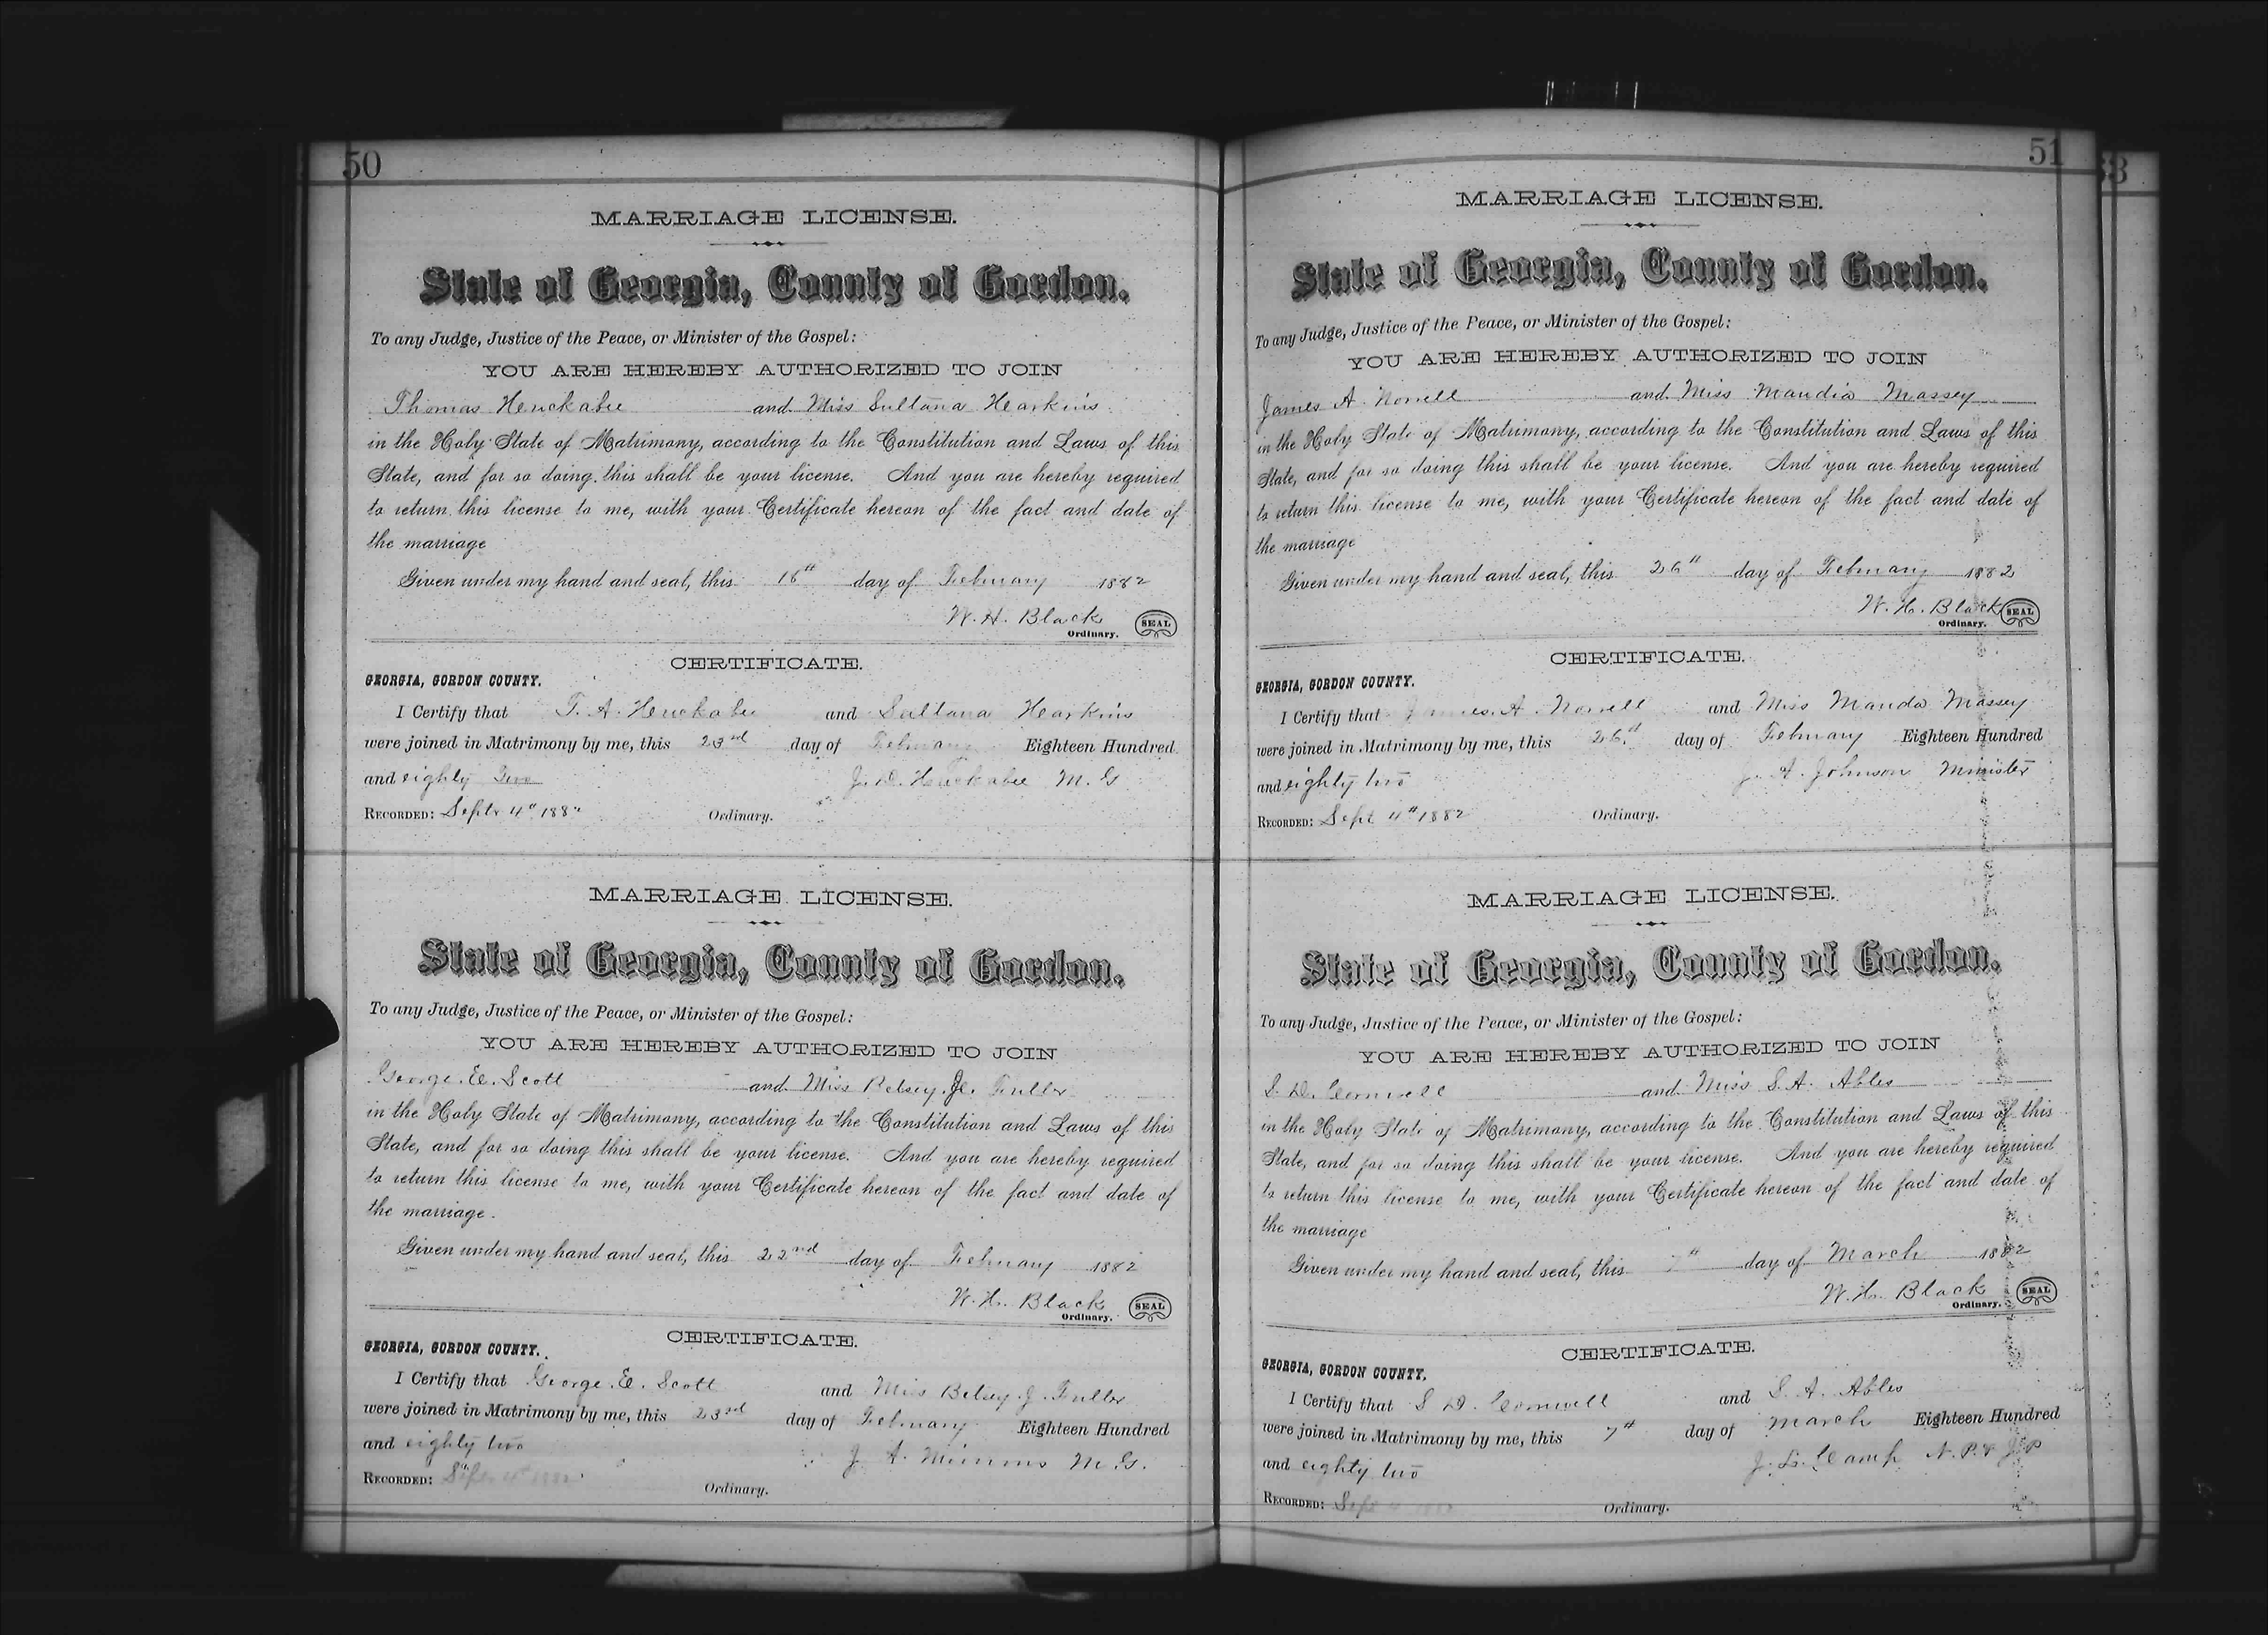 50
MARRIAGE LICENSE.
State of Georgia, County of Gordon.
To any Judge, Justice of the Peace, or Minister of the Gospel:
YOU ARE HEREBY AUTHORIZED TO JOIN
Thomas Huckabee and Miss Sultana Hearkins
in the Holy State of Matrimony, according to the Constitution and Laws of this
State, and for so doing this shall be your license. And you are hereby required
to return this license to me, with your Certificate hereon of the fact and date of
the marriage
Given under my hand and seal, this 16th day of February 1882
W. H. Black
Ordinary. SEAL
CERTIFICATE.
GEORGIA, GORDON COUNTY.
I Certify that T. A. Huckabee and Sultana Hearkins
were joined in Matrimony by me, this 23rd day of February Eighteen Hundred
and eighty Two J. D. Huckabee M. G
RECORDED: Septr 4th 1882 Ordinary.
MARRIAGE LICENSE.
State of Georgia, County of Gordon.
To any Judge, Justice of the Peace, or Minister of the Gospel:
YOU ARE HEREBY AUTHORIZED TO JOIN
George E. Scott and Miss Betsey J. Fuller
in the Holy State of Matrimony, according to the Constitution and Laws of this
State, and for so doing this shall be your license. And you are hereby required
to return this license to me, with your Certificate hereon of the fact and date of
the marriage.
Given under my hand and seal, this 22nd day of February 1882
W. H. Black
Ordinary. SEAL
CERTIFICATE.
GEORGIA, GORDON COUNTY.
I Certify that George E. Scott and Miss Betsey J. Fuller
were joined in Matrimony by me, this 23rd day of February Eighteen Hundred
and eighty two J. A. Mimms M. G.
RECORDED: Septr 4th 1882 Ordinary.
51
MARRIAGE LICENSE.
State of Georgia, County of Gordon.
To any Judge, Justice of the Peace, or Minister of the Gospel:
YOU ARE HEREBY AUTHORIZED TO JOIN
James A. Norrell and Miss Mandia Massey
in the Holy State of Matrimony, according to the Constitution and Laws of this
State, and for so doing this shall be your license. And you are hereby required
to return this license to me, with your Certificate hereon of the fact and date of
the marriage
Given under my hand and seal, this 26th day of February 1882
W. H. Black
Ordinary. SEAL
CERTIFICATE.
GEORGIA, GORDON COUNTY.
I Certify that James A. Norrell and Miss Manda Massey
were joined in Matrimony by me, this 26th day of February Eighteen Hundred
and eighty two J. A. Johnson Minister
RECORDED: Sept 4th 1882 Ordinary.
MARRIAGE LICENSE.
State of Georgia, County of Gordon.
To any Judge, Justice of the Peace, or Minister of the Gospel:
YOU ARE HEREBY AUTHORIZED TO JOIN
S. D. Cornwell and Miss S. A. Ables
in the Holy State of Matrimony, according to the Constitution and Laws of this
State, and for so doing this shall be your license. And you are hereby required
to return this license to me, with your Certificate hereon of the fact and date of
the marriage
Given under my hand and seal, this 7th day of March 1882
W. H. Black
Ordinary. SEAL
CERTIFICATE.
GEORGIA, GORDON COUNTY.
I Certify that S D. Cornwell and S. A. Ables
were joined in Matrimony by me, this 7th day of March Eighteen Hundred
and eighty two J. L. Camp N. P. & J P
RECORDED: Sept 4 1882 Ordinary.